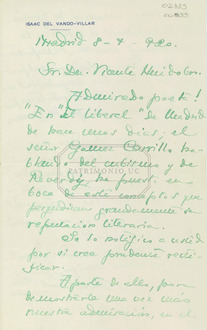 ISAAC DEL VANDO-VILLAR
Madrid 8-7-920.
Sr. Dn. Vicente Huidobro.
¡Admirado poeta!
"En el liberal" de Madrid
de hace unos días, el
señor Gomez Carrillo ha-
blando del cubismo y de
Reverdy, ha puesto en
boca de este conceptos que
perjudican grandemente su
reputacion literaria.
Se lo notifico a usted
por si cree prudente recti-
ficar.
Aparte de ello, para
demostrarle una vez mas
nuestra admiración, en el
PATRIMONIO UC